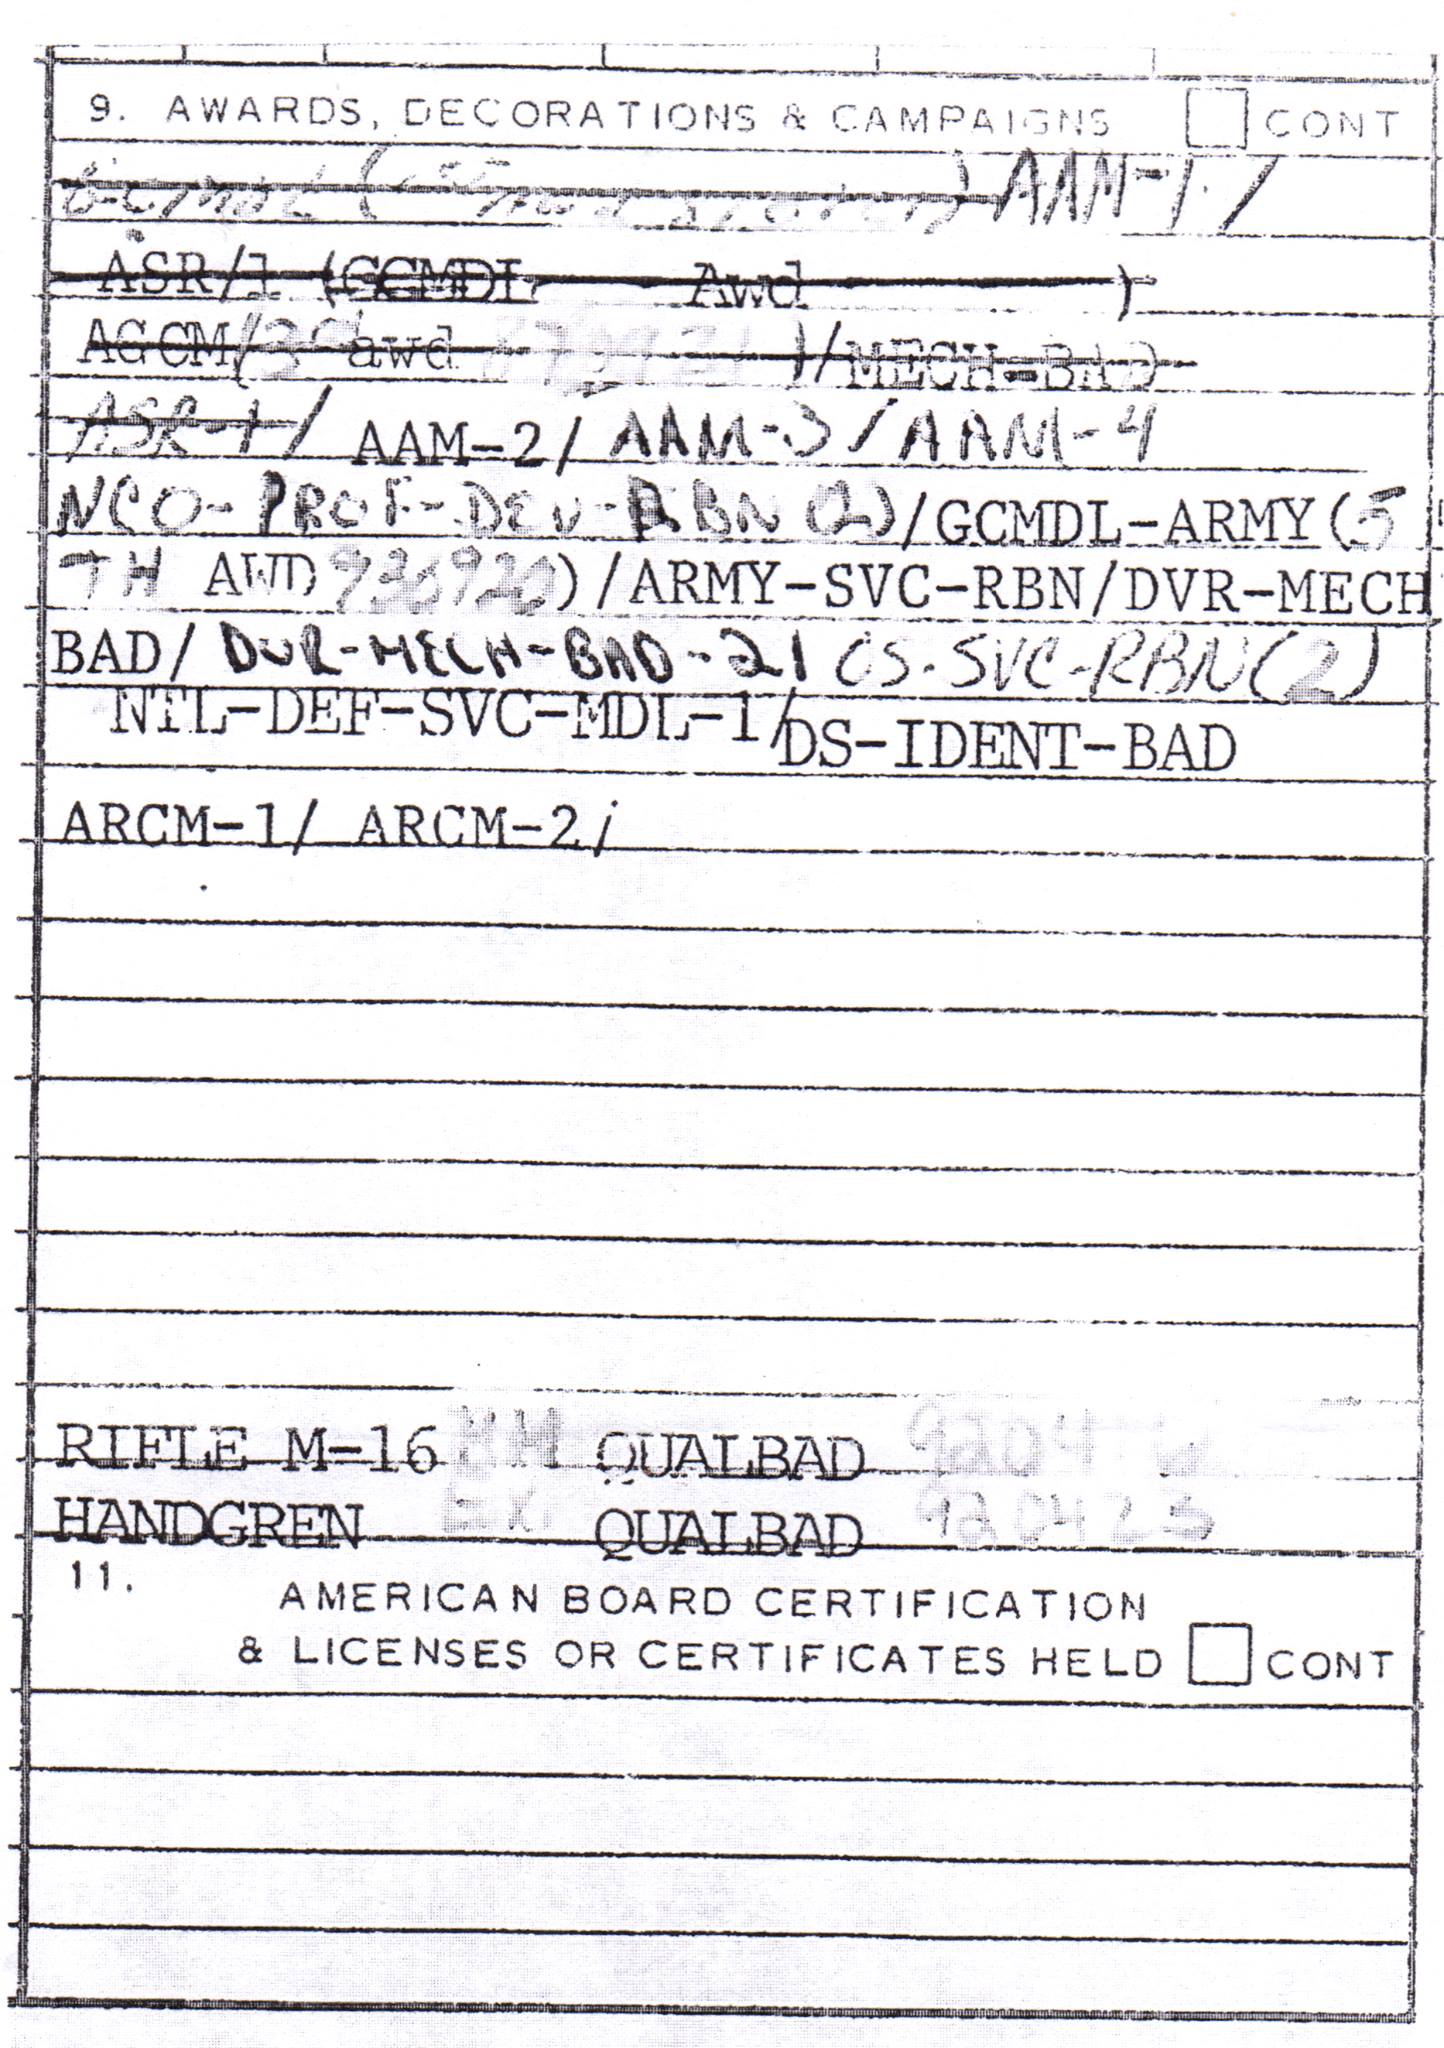 9. AWARDS, DECORATIONS & CAMPAIGNS CONT
AAM-1/
ASR/1 (GCMDL Awd )
AGCM/ awd )/MECH-BAD
ASR-1/ AAM-2/ AAM-3/ AAM-4
NCO-PROF-DEV-RBN(2)/GCMDL-ARMY(5
TH AWD )/ARMY-SVC-RBN/DVR-MECH
BAD/ DVR-MECH-BAD-2/ OS-SVC-RBN(2)
NTL-DEF-SVC-MDL-1/DS-IDENT-BAD
ARCM-1/ ARCM-2/
RIFLE M-16 QUALBAD
HANDGREN QUALBAD 920423
11.
AMERICAN BOARD CERTIFICATION
& LICENSES OR CERTIFICATES HELD CONT